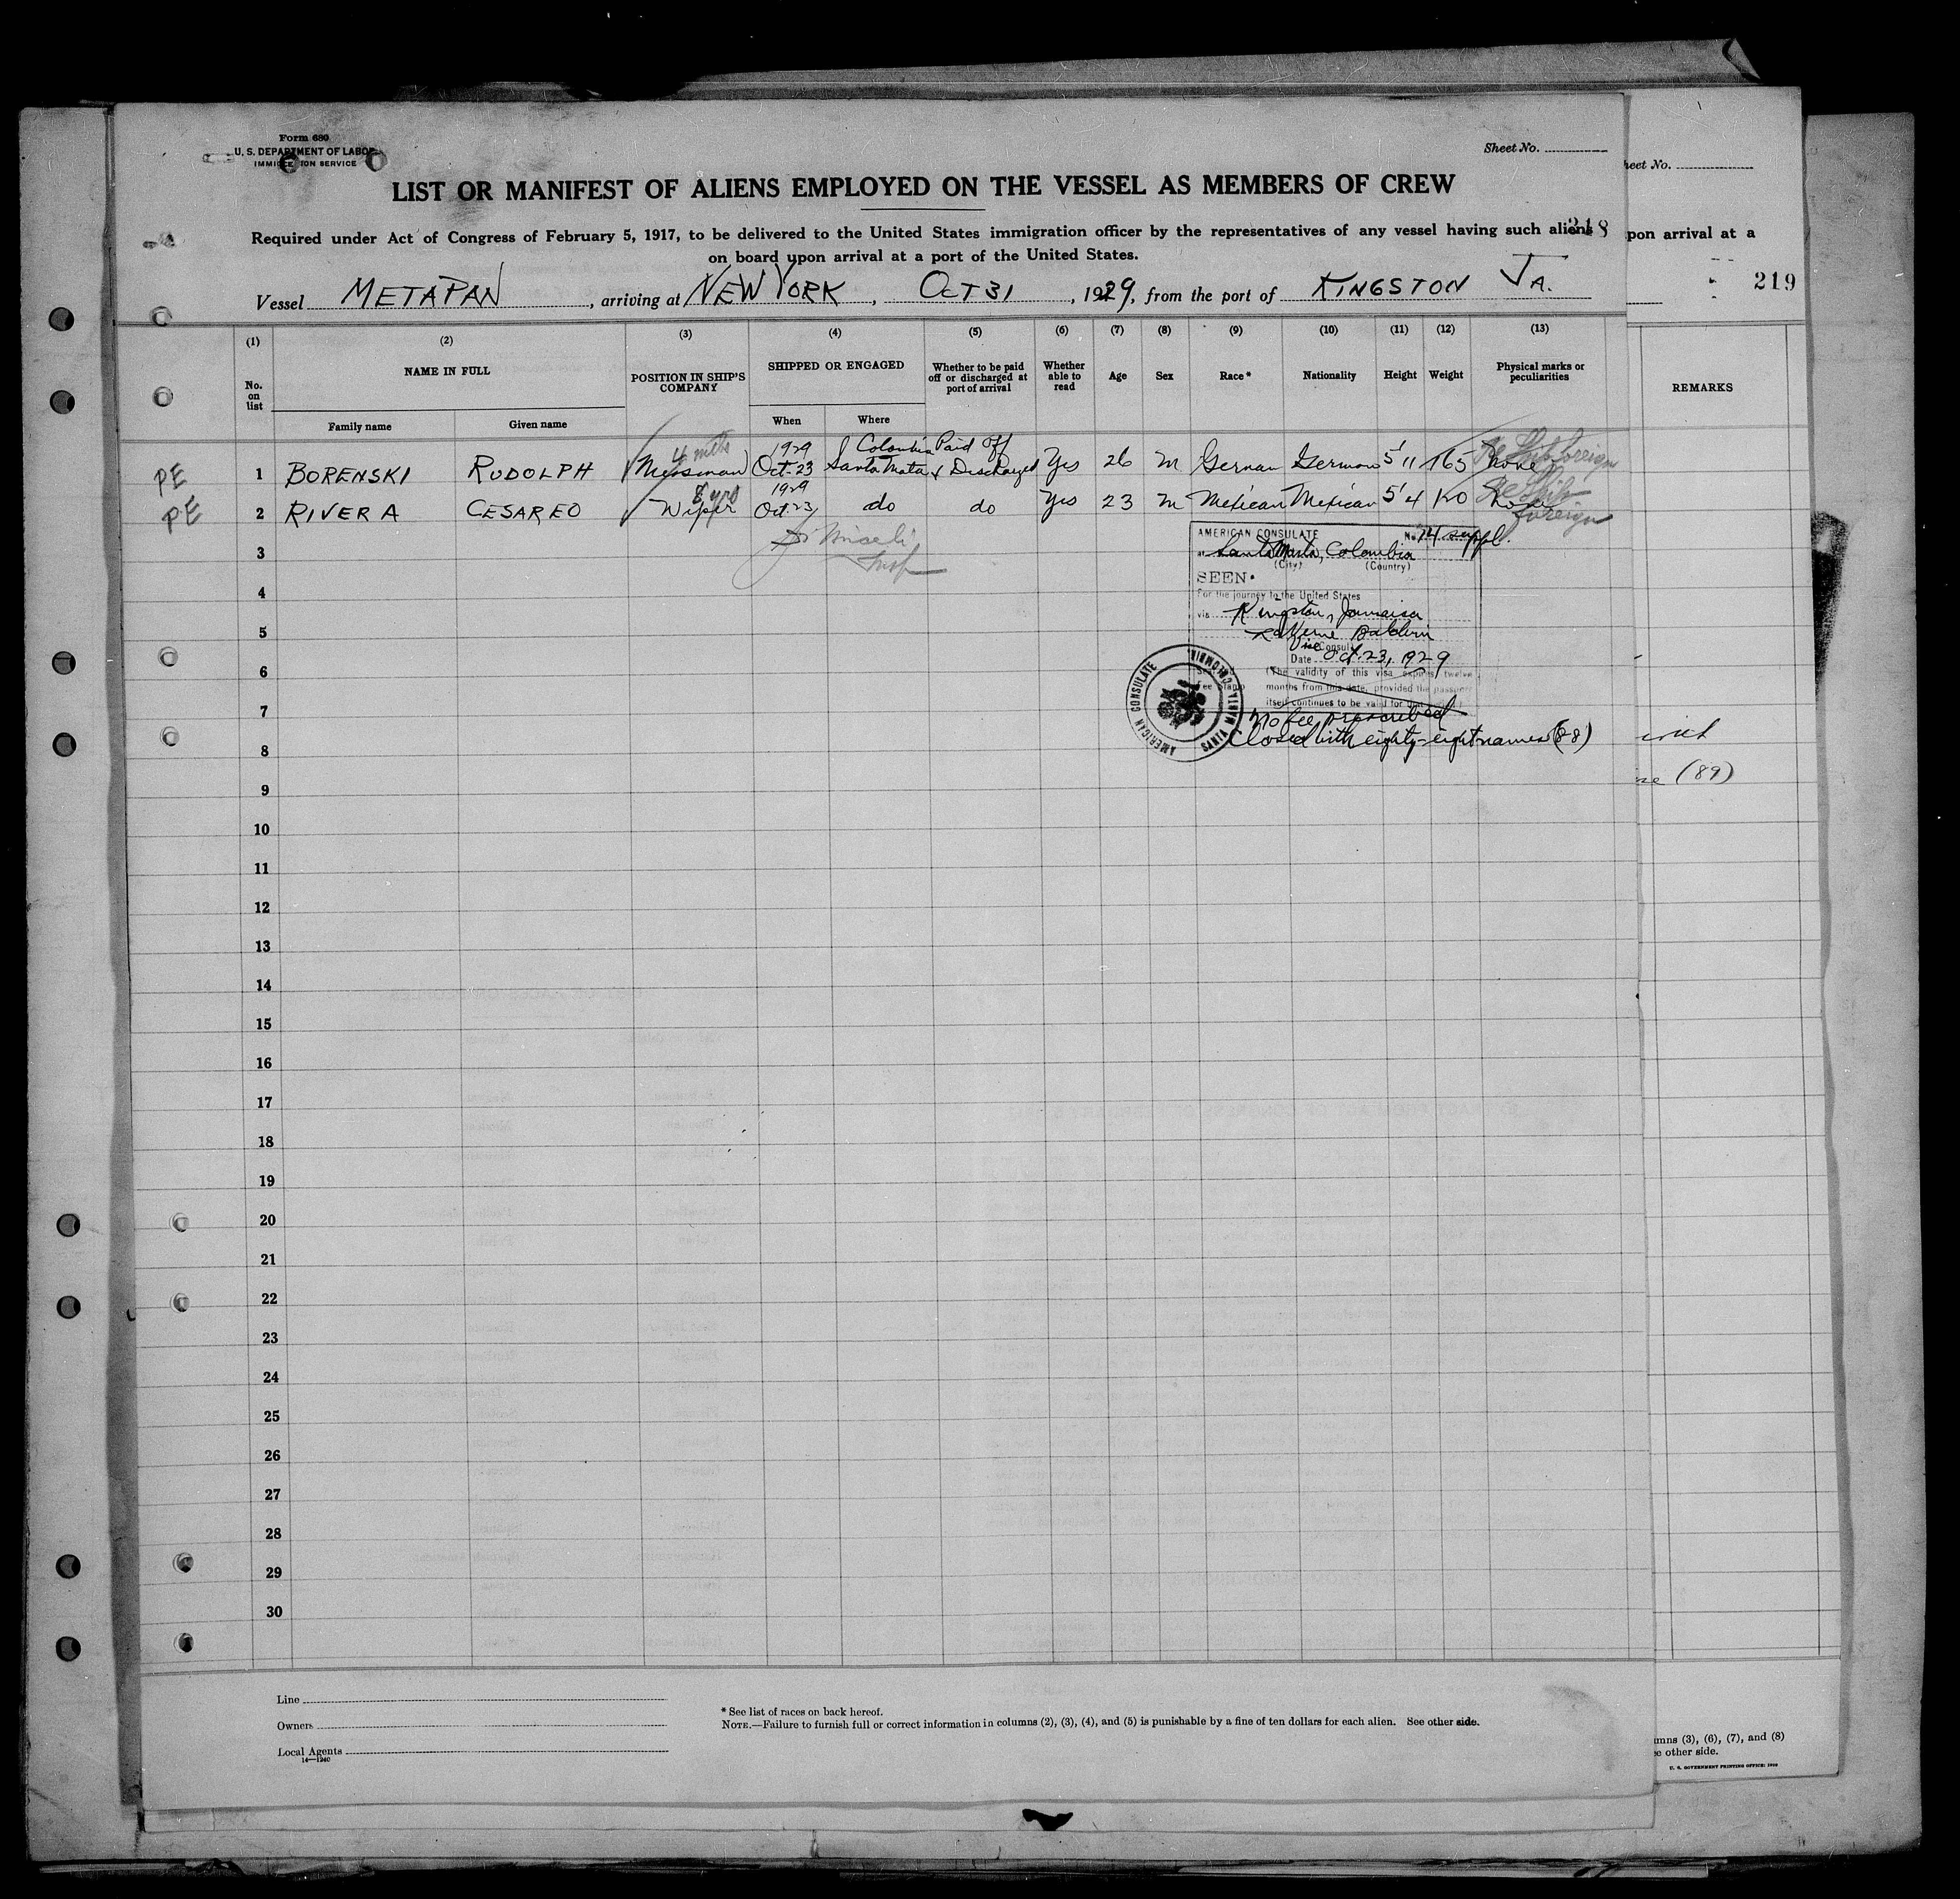 Form 680
U. S. DEPARTMENT OF LABOR
IMMIGRATION SERVICE
Sheet No.
LIST OR MANIFEST OF ALIENS EMPLOYED ON THE VESSEL AS MEMBERS OF CREW
Required under Act of Congress of February 5, 1917, to be delivered to the United States immigration officer by the representatives of any vessel having such aliens
218
on board upon arrival at a port of the United States.
Vessel METAPAN, arriving at NEW YORK, OCT 31, 1929, from the port of KINGSTON JA.
heet No.
pon arrival at a
219
(1) (2) (3) (4) (5) (6) (7) (8) (9) (10) (11) (12) (13)
No. on list
NAME IN FULL
Family name Given name
POSITION IN SHIP'S COMPANY
SHIPPED OR ENGAGED
When Where
Whether to be paid off or discharged at port of arrival
Whether able to read
Age
Sex
Race *
Nationality
Height
Weight
Physical marks or peculiarities
REMARKS
4 mths 1929 Colombia Paid Off
PE 1 BORENSKI RUDOLPH Messman Oct. 23 Santa Mata & Discharged Yes 26 M German German 5' 11 165 None
Re Ship foreign
8 yrs 1929
PE 2 RIVERA CESAREO Wiper Oct. 23 do do Yes 23 M Mexican Mexican 5' 4 120 None
Re Ship
foreign
Insp
3
4
5
6
7
8
9
10
11
12
13
14
15
16
17
18
19
20
21
22
23
24
25
26
27
28
29
30
AMERICAN CONSULATE No. 74 suppl.
at Santa Marta, Colombia
(City) (Country)
SEEN.
For the journey to the United States
via Kingston, Jamaica
LaVerne Baldwin
Vice Consul
Date Oct. 23, 1929
(The validity of this visa expires twelve
months from this date, provided the passport
itself continues to be valid for that period)
Fee Stamp
AMERICAN CONSULATE
SANTA MARTA, COLOMBIA
No fee prescribed
Closed with eighty-eight names (88)
(89)
Line
Owners
Local Agents
14—1240
* See list of races on back hereof.
NOTE.—Failure to furnish full or correct information in columns (2), (3), (4), and (5) is punishable by a fine of ten dollars for each alien. See other side.
umns (3), (6), (7), and (8)
ee other side.
U. S. GOVERNMENT PRINTING OFFICE: